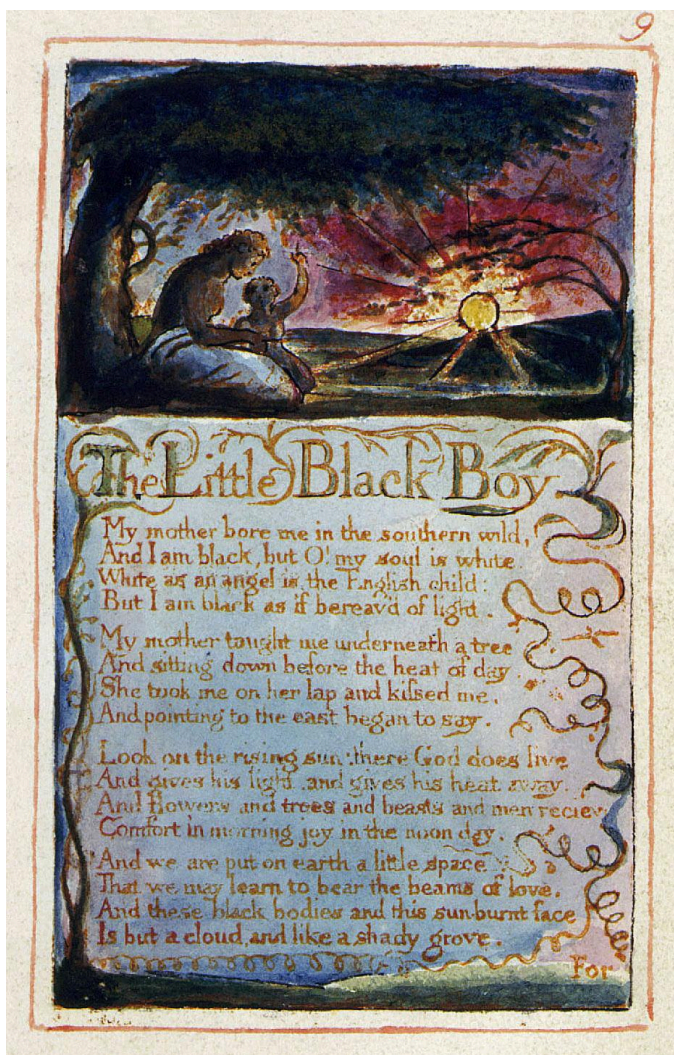 9
The Little Black Boy
My mother bore me in the southern wild,
And I am black, but O! my soul is white
White as an angel is the English child:
But I am black as if bereav'd of light.
My mother taught me underneath a tree
And sitting down before the heat of day
She took me on her lap and kiſsed me,
And pointing to the east began to say.
Look on the rising sun: there God does live
And gives his light, and gives his heat away.
And flowers and trees and beasts and men recieve
Comfort in morning joy in the noon day.
And we are put on earth a little space
That we may learn to bear the beams of love,
And these black bodies and this sun-burnt face
Is but a cloud, and like a shady grove.
For